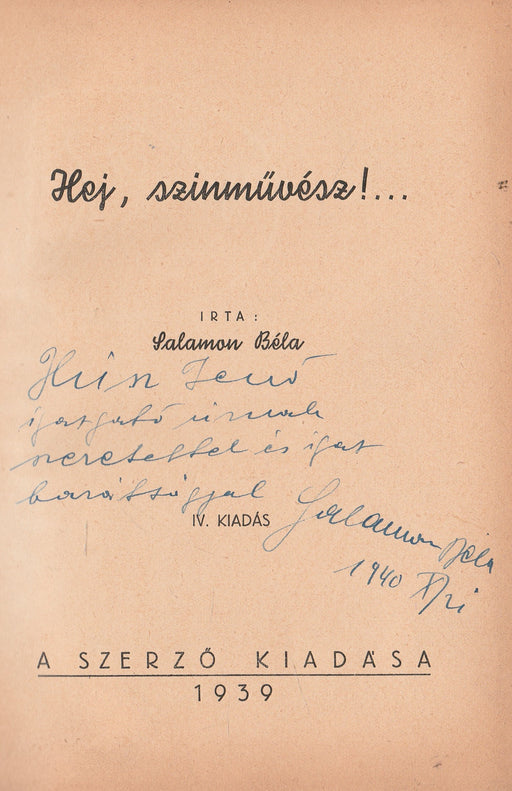 Hej, szinművész!...
IRTA:
Salamon Béla
Jenő
igazgató úrnak
szeretettel és igaz
barátsággal
IV. KIADÁS
Salamon Béla
1940
A SZERZŐ KIADÁSA
1939